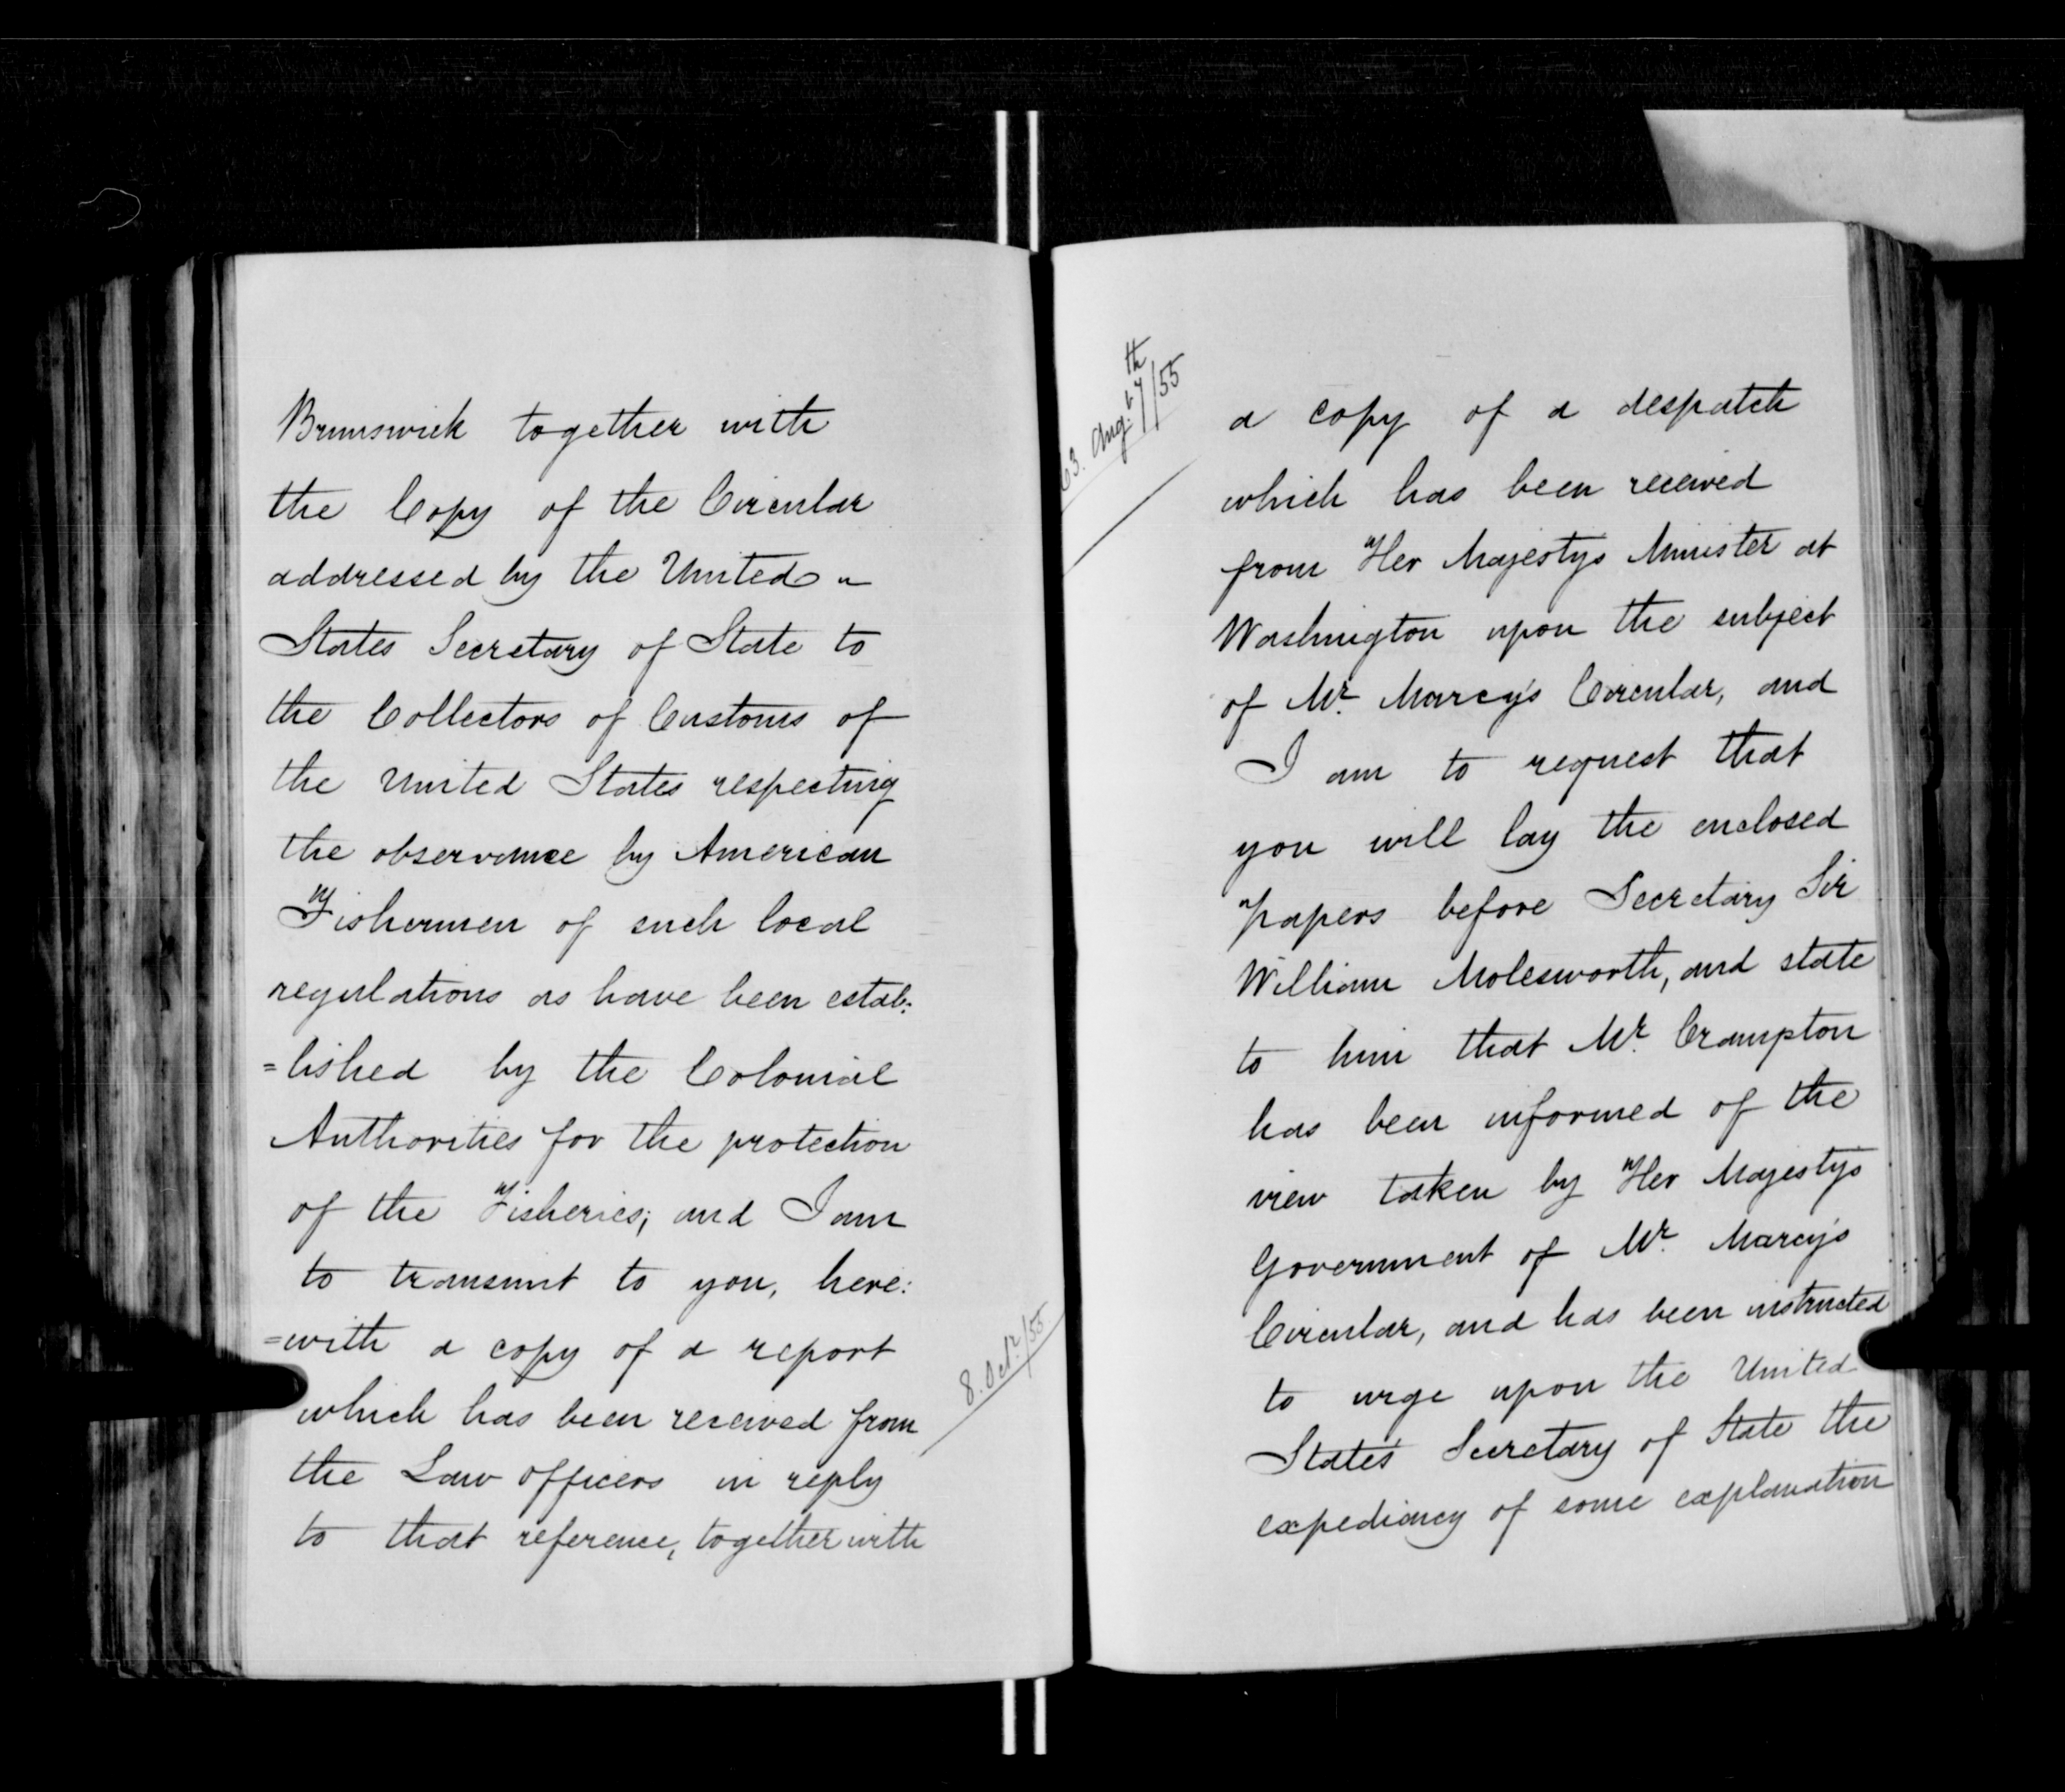 Brunswick together with
the Copy of the Circular
addressed by the United
States Secretary of State to
the Collectors of Customs of
the United States respecting
the observance by American
Fishermen of such local
regulations as have been estab:
=lished by the Colonial
Authorities for the protection
of the Fisheries; and I am
to transmit to you, here:
=with a copy of a report
which has been received from
the Law officers in reply
to that reference, together with
8. Octr/55
Aug: /55
a copy of a despatch
which has been received
from Her Majestys Minister at
Washington upon the subject
of Mr. Marcy's Circular, and
I am to request that
you will lay the enclosed
papers before Secretary Sir
William Molesworth, and state
to him that Mr. Crampton
has been informed of the
view taken by Her Majestys
Government of Mr. Marcy's
Circular, and has been instructed
to urge upon the United
States Secretary of State the
expediency of some explanation